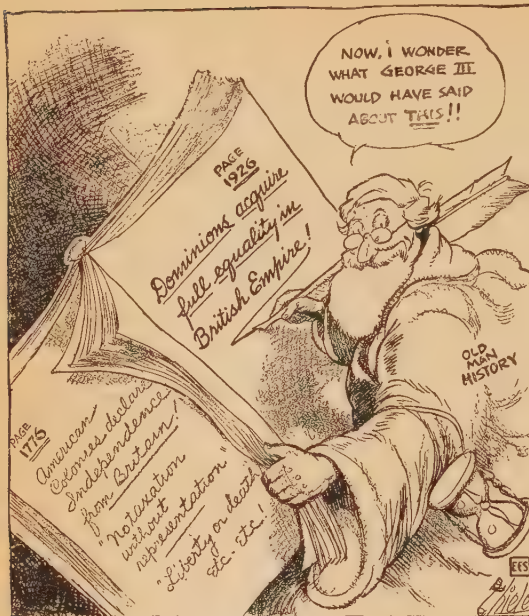 NOW, I WONDER
WHAT GEORGE III
WOULD HAVE SAID
ABOUT THIS!!
PAGE
1926
Dominions acquire
full equality in
British Empire!
OLD
MAN
HISTORY
PAGE
1776
American
Colonies declare
Independence
from Britain!
"No taxation
without
representation"
"Liberty or death"
etc. - etc!
EES